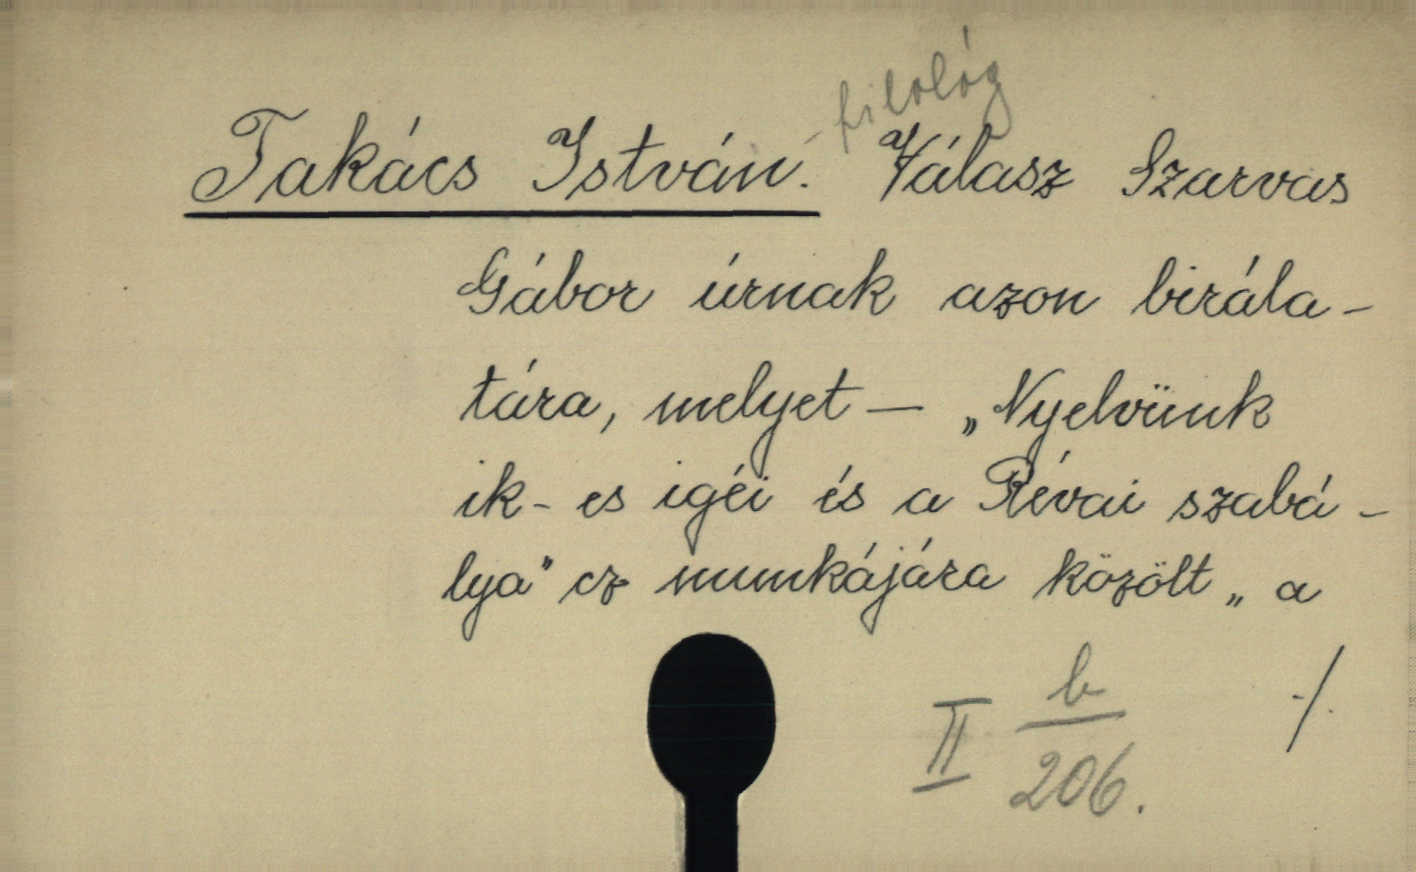 filológ
Takács István. Válasz Szarvas
Gábor úrnak azon birála-
tára, melyet — „Nyelvünk
ik-es igéi és a Révai szabá-
lya" cz munkájára közölt „a
II b/206.
./.